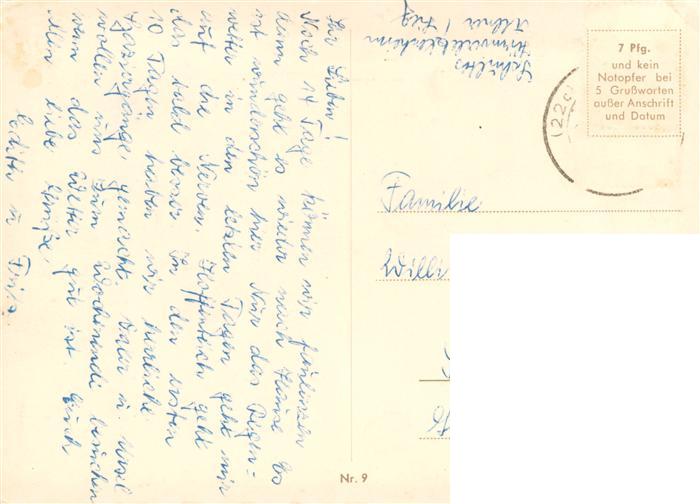 Ihr Lieben!
Noch 14 Tage können wir faulenzen
dann geht es wieder nach Hause. Es
ist wunderschön hier. Nur das Regen-
wetter in den letzten Tagen geht mir
auf die Nerven. Hoffentlich geht
das bald besser. In den ersten
10 Tagen haben wir herrliche
Spaziergänge gemacht. u. Ursel
wollen uns zum Wochenende besuchen
wenn das Wetter gut ist. Euch
allen liebe Grüße,
Edith u Fritz
7 Pfg.
und kein
Notopfer bei
5 Grußworten
außer Anschrift
und Datum
(22c)
Familie
Willi
Nr. 9